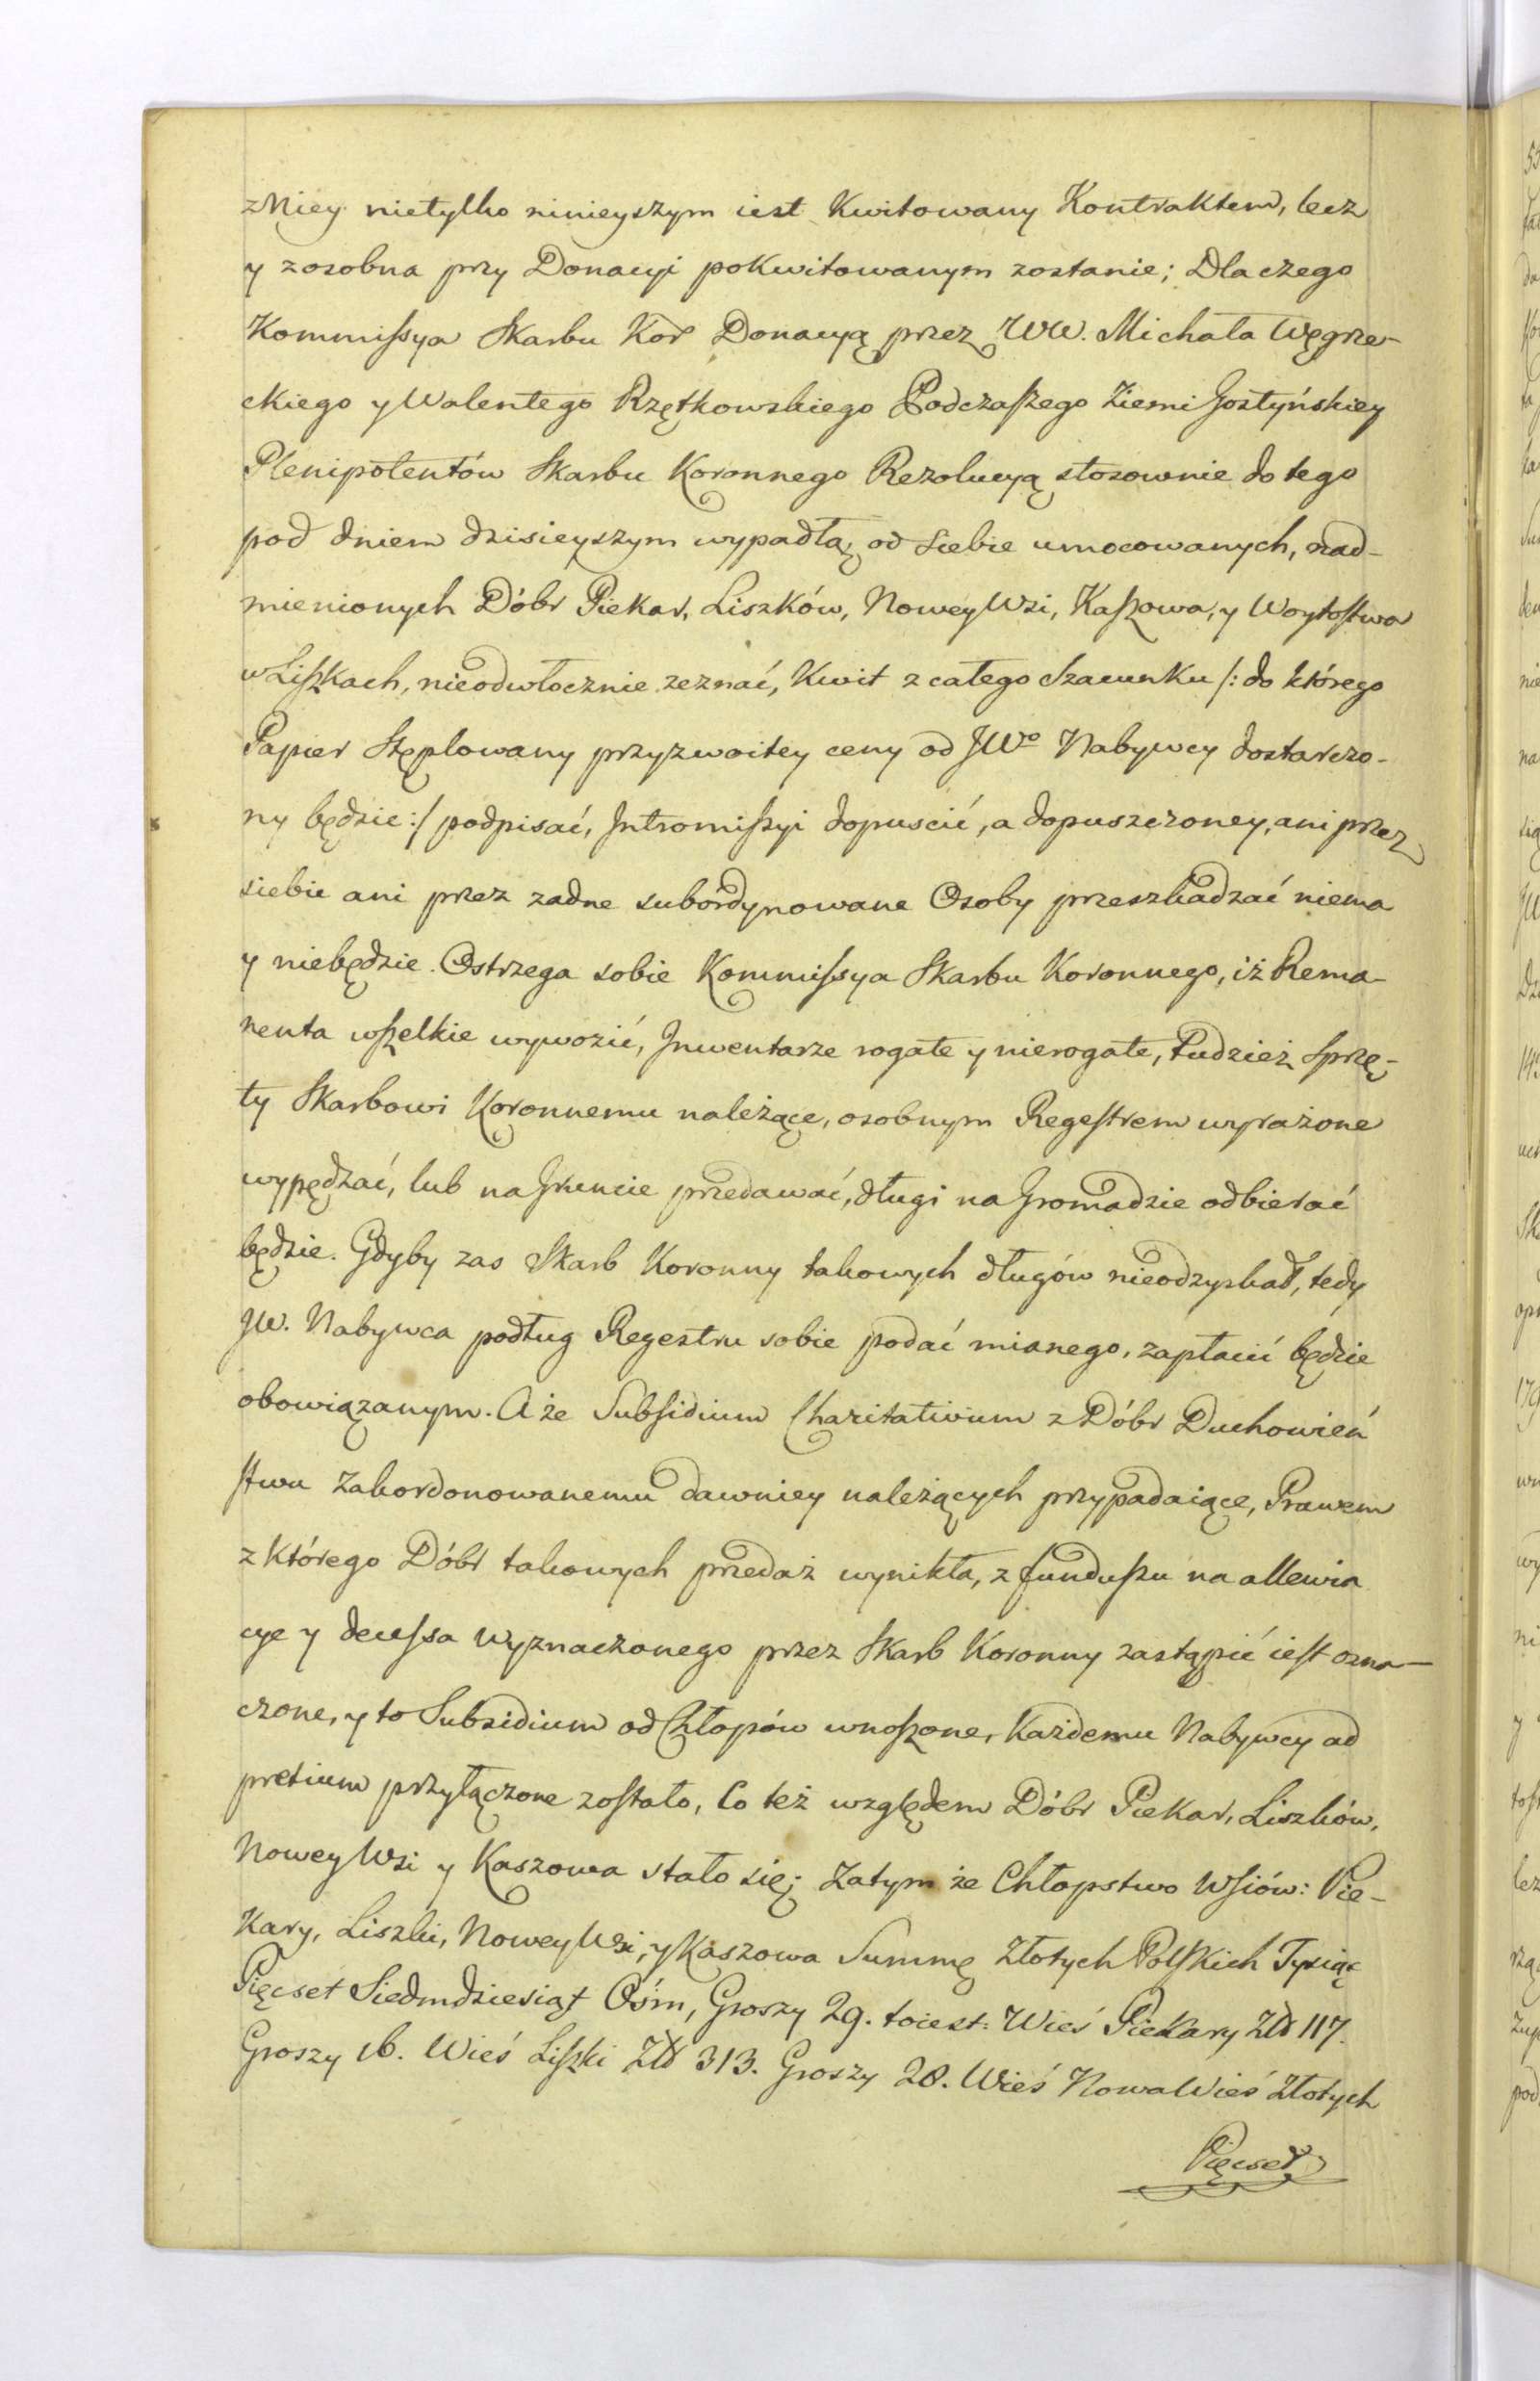 z Niey nietylko ninieyszym iest Kwitowany Kontraktem, lecz
y zosobna przy Donacyi pokwitowanym zostanie; Dla czego
Kommissya Skarbu Kor Donacyą przez WW. Michała Węgrze-
ckiego y Walentego Rzętkowskiego Podczaszego Ziemi Gostyńskiey
Plenipotentów Skarbu Koronnego Rezolucyą stosownie do tego
pod dniem dzisieyszym wypadłą od siebie umocowanych, nad-
mienionych Dóbr Piekar, Liszków, Nowey Wsi, Kaszowa, y Woytostwa
w Liszkach, nieodwłocznie zeznać, Kwit z całego Szacunku /: do którego
Papier Stęplowany przyzwoitey ceny od JWo Nabywcy dostarczo-
ny będzie :/ podpisać, Intromissyi dopuscić, a dopuszczoney, ani przez
siebie ani przez zadne subordynowane Osoby przeszkadzać niema
y niebędzie. Ostrzega sobie Kommissya Skarbu Koronnego, iż Rema-
nenta wszelkie wywozić, Inwentarze rogate y nierogate, Tudzież Sprzę-
ty Skarbowi Koronnemu należące, osobnym Regestrem wyrażone
wypędzać, lub na Gruncie przedawać, długi na Gromadzie odbierać
będzie. Gdyby zas Skarb Koronny takowych długów nieodzyskał, tedy
JW. Nabywca podług Regestru sobie podać mianego, zapłacić będzie
obowiązanym. A że Subsidium Charitativum z Dóbr Duchowień
stwu Zakordonowanemu dawniey należących przypadaiące, Prawem
z którego Dóbr takowych przedaż wynikła, z funduszu na allewia
cye y decessa wyznaczonego przez Skarb Koronny zastąpić iest ozna-
czone, y to Subsidium od Chłopów wnoszone, Każdemu Nabywcy ad
pretium przyłączone zostało, Co też względem Dóbr Piekar, Liszków,
Nowey Wsi y Kaszowa stało się; Zatym że Chłopstwo Wsiów: Pie-
kary, Liszki, Nowey Wsi, y Kaszowa Summę Złotych Polskich Tysiąc
Pięcset Siedmdziesiąt Ośm, Groszy 29. toiest: Wieś Piekary Zł 117.
Groszy 16. Wieś Liszki Zł 313. Groszy 28. Wieś Nowa Wieś Złotych
Pięcset